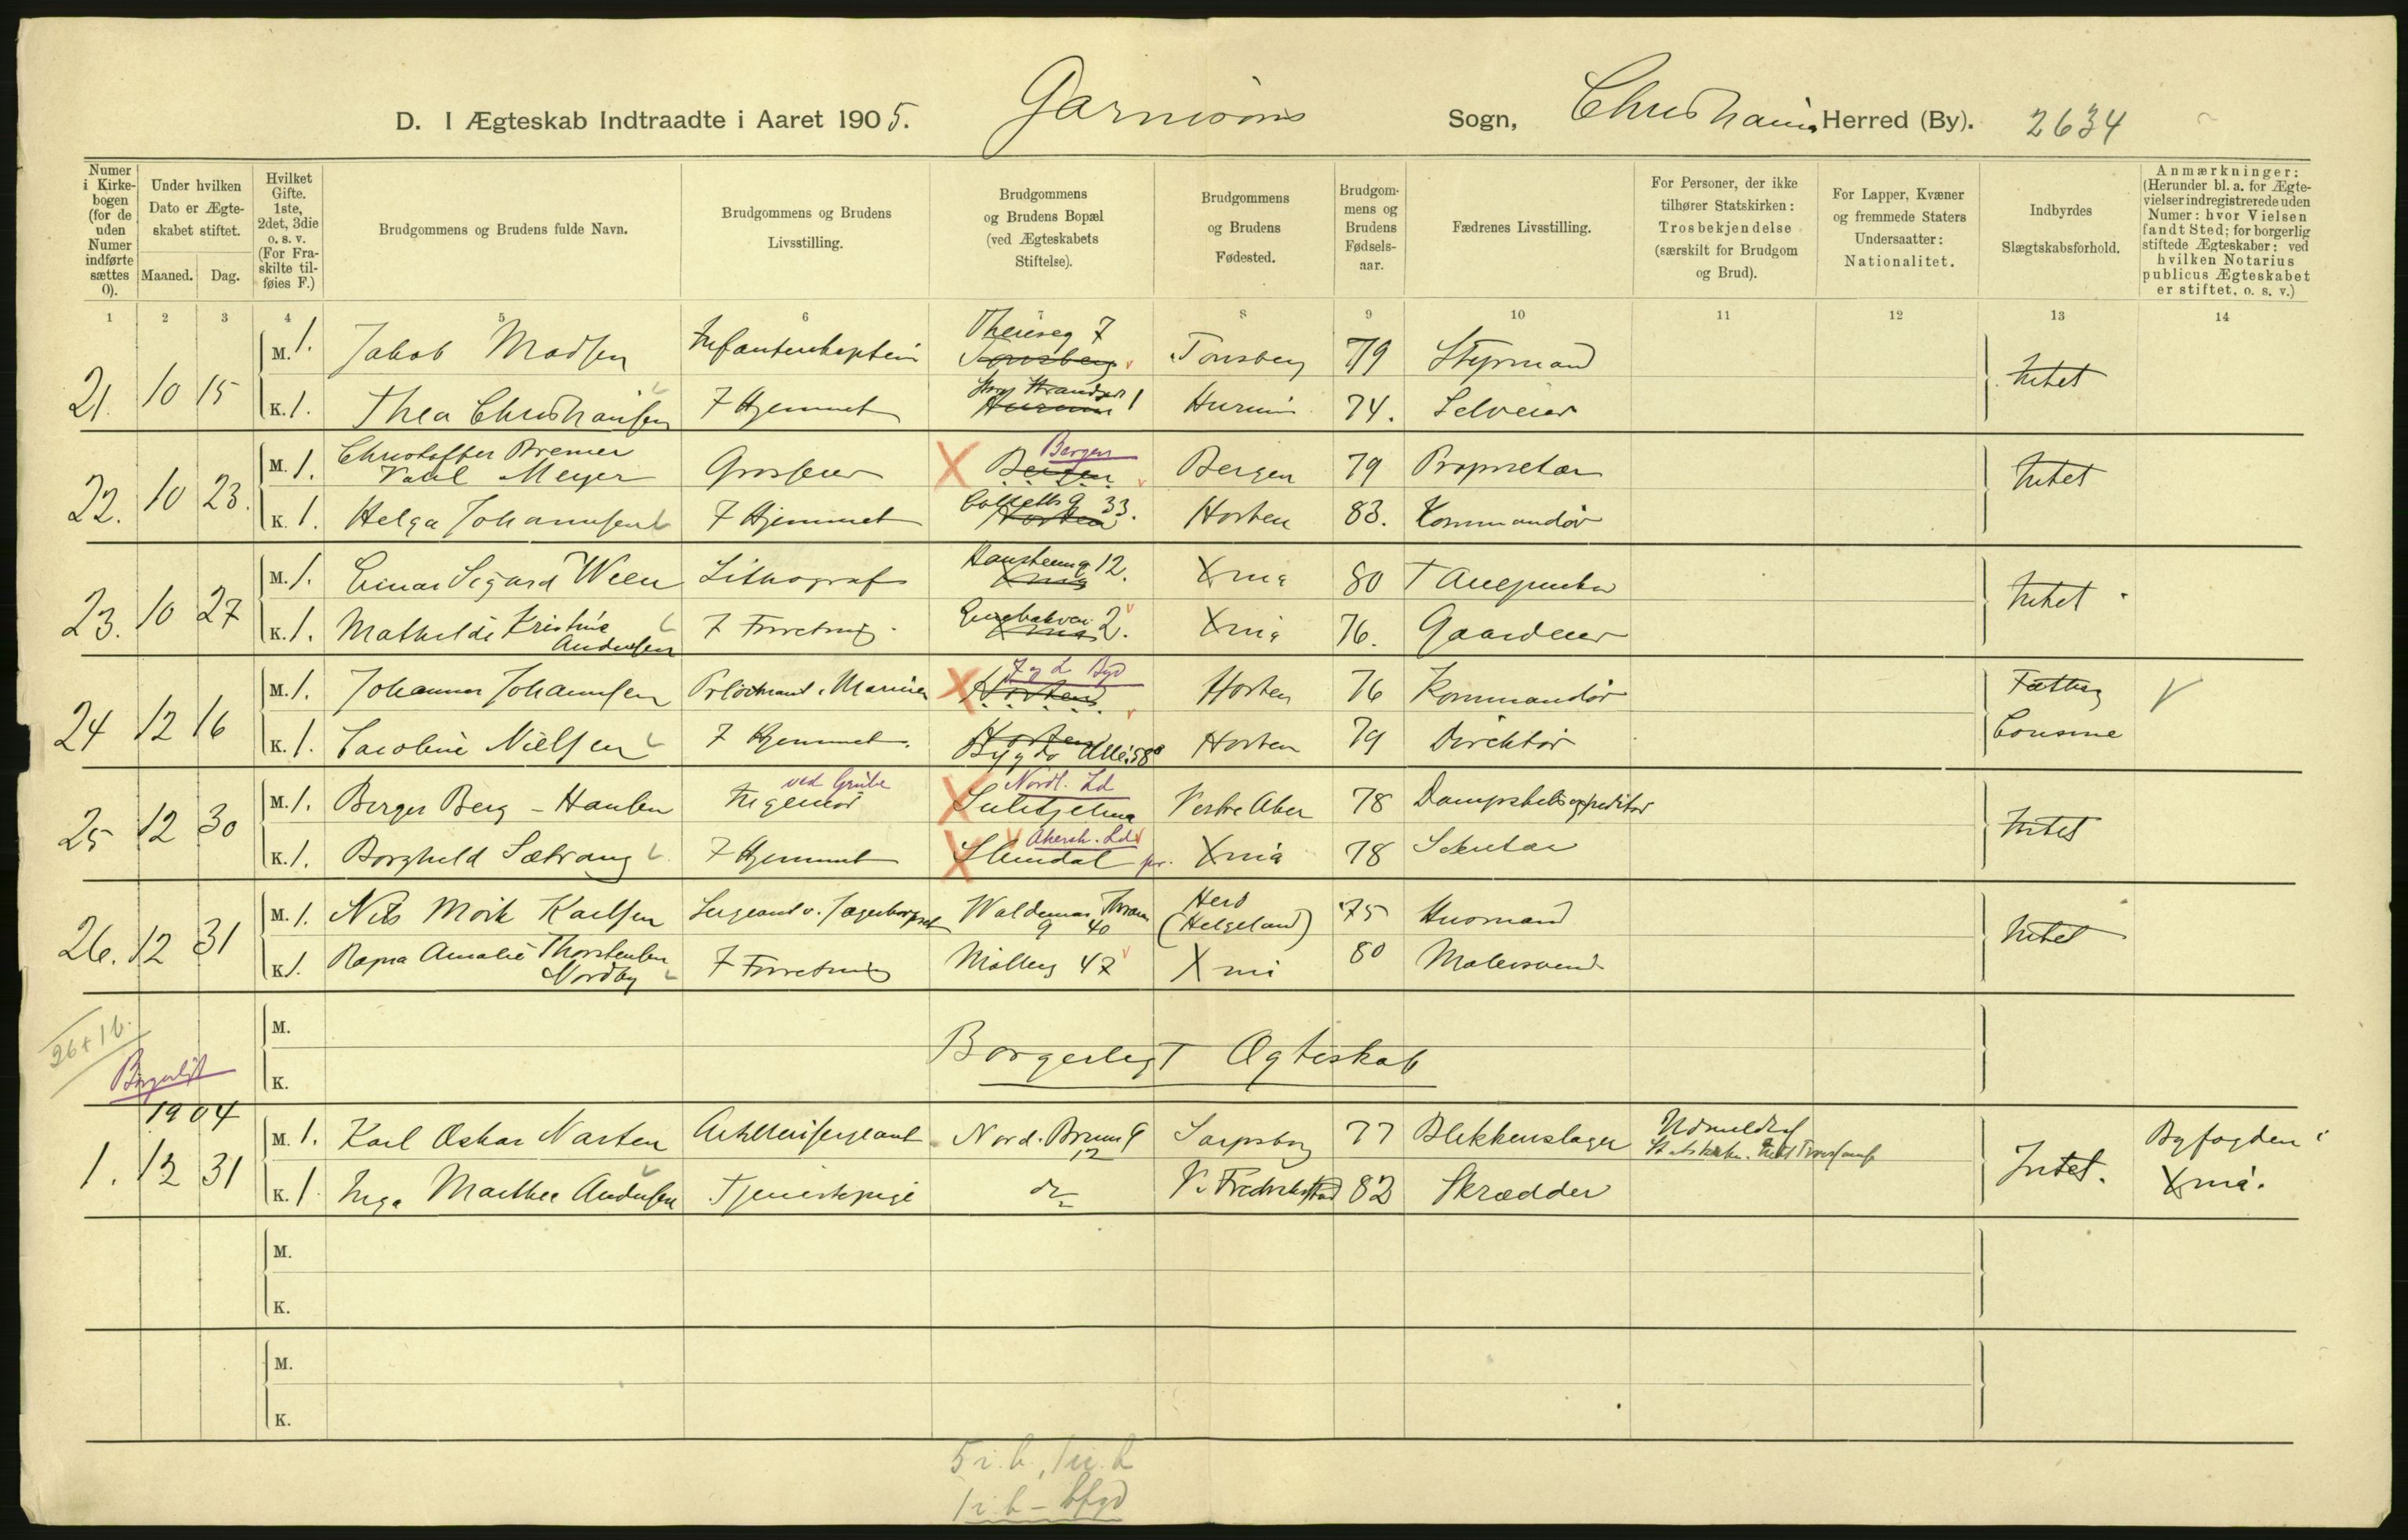 D. I Ægteskab Indtraadte i Aaret 1905. Garnisons Sogn, Christiania Herred (By). 2634
Numer i Kirkebogen (for de uden Numer indførte sættes 0).
Under hvilken Dato er Ægteskabet stiftet.
Maaned. Dag.
Hvilket Gifte. 1ste, 2det, 3die o. s. v. (For Fraskilte tilføies F.)
Brudgommens og Brudens fulde Navn.
Brudgommens og Brudens Livsstilling.
Brudgommens og Brudens Bopæl (ved Ægteskabets Stiftelse).
Brudgommens og Brudens Fødested.
Brudgommens og Brudens Fødselsaar.
Fædrenes Livsstilling.
For Personer, der ikke tilhører Statskirken: Trosbekjendelse (særskilt for Brudgom og Brud).
For Lapper, Kvæner og fremmede Staters Undersaatter: Nationalitet.
Indbyrdes Slægtskabsforhold.
Anmærkninger: (Herunder bl. a. for Ægtevielser indregistrerede uden Numer: hvor Vielsen fandt Sted; for borgerlig stiftede Ægteskaber: ved hvilken Notarius publicus Ægteskabet er stiftet, o. s. v.)
1 2 3 4 5 6 7 8 9 10 11 12 13 14
21. 10 15 M. 1. Jakob Madsen Infanterikaptein Thereseg 7 Tønsberg Tønsberg 79 Styrmand Intet
K. 1. Thea Christiansen I Hjemmet Strandgd 1 Hurum Hurum 74. Selveier
22. 10 23. M. 1. Christoffer Bremer Vahl Meyer Grosserer Bergen Bergen Bergen 79 Proprietær Intet
K. 1. Helga Johannesen I Hjemmet Colletts g 33. Horten Horten 83. Kommandør
23. 10 27 M. 1. Einar Sigurd Ween Lithograf Hansteensg 12. Xnia Xnia 80 Intet
K. 1. Mathilde Kristine Andersen I Forretning 2. Xnia Xnia 76. Gaardeier
24 12 16 M. 1. Johannes Johannesen Prløitnant i Marinen Horten Horten 76 Kommandør Fætter
K. 1. Caroline Nielsen I Hjemmet. Horten Bygdø Alle 58 Horten 79 Direktør Cousine
25 12 30 M. 1. Birger Berg - Hansen Ingeniør ved Grube Nordl. Ld Sulitjelma Vestre Aker 78 Dampskibsexpeditør Intet
K. 1. Borghild Sætrang I Hjemmet Akersh. Ld Xnia 78 Sekretær
26. 12 31 M. 1. Nils Mork Karlsen Sergeant v. Jægerkorpset Waldemar Thranes g 40 Herø (Helgeland) 75 Husmand Intet
K. 1. Ragna Amalie Thorstensen Nordby I Forretning Mølleg 47 Xnia 80 Malersvend
26 + 1 b.
M.
K.
Borgerligt Ægteskab
Borgerligt
1904
1. 12 31 M. 1. Karl Oskar Narten Artillerisergeant Nord. Brun g 12 Sarpsborg 77 Blikkenslager Udmeldt af Statskirken. Intet Trossamf Intet. Byfogden i Xnia.
K. 1. Inga Marthea Andersen Tjenestepige do V. Fredrikstad 82 Skrædder
M.
K.
M.
K.
5 i. b, 1 u. b
1 i. b -